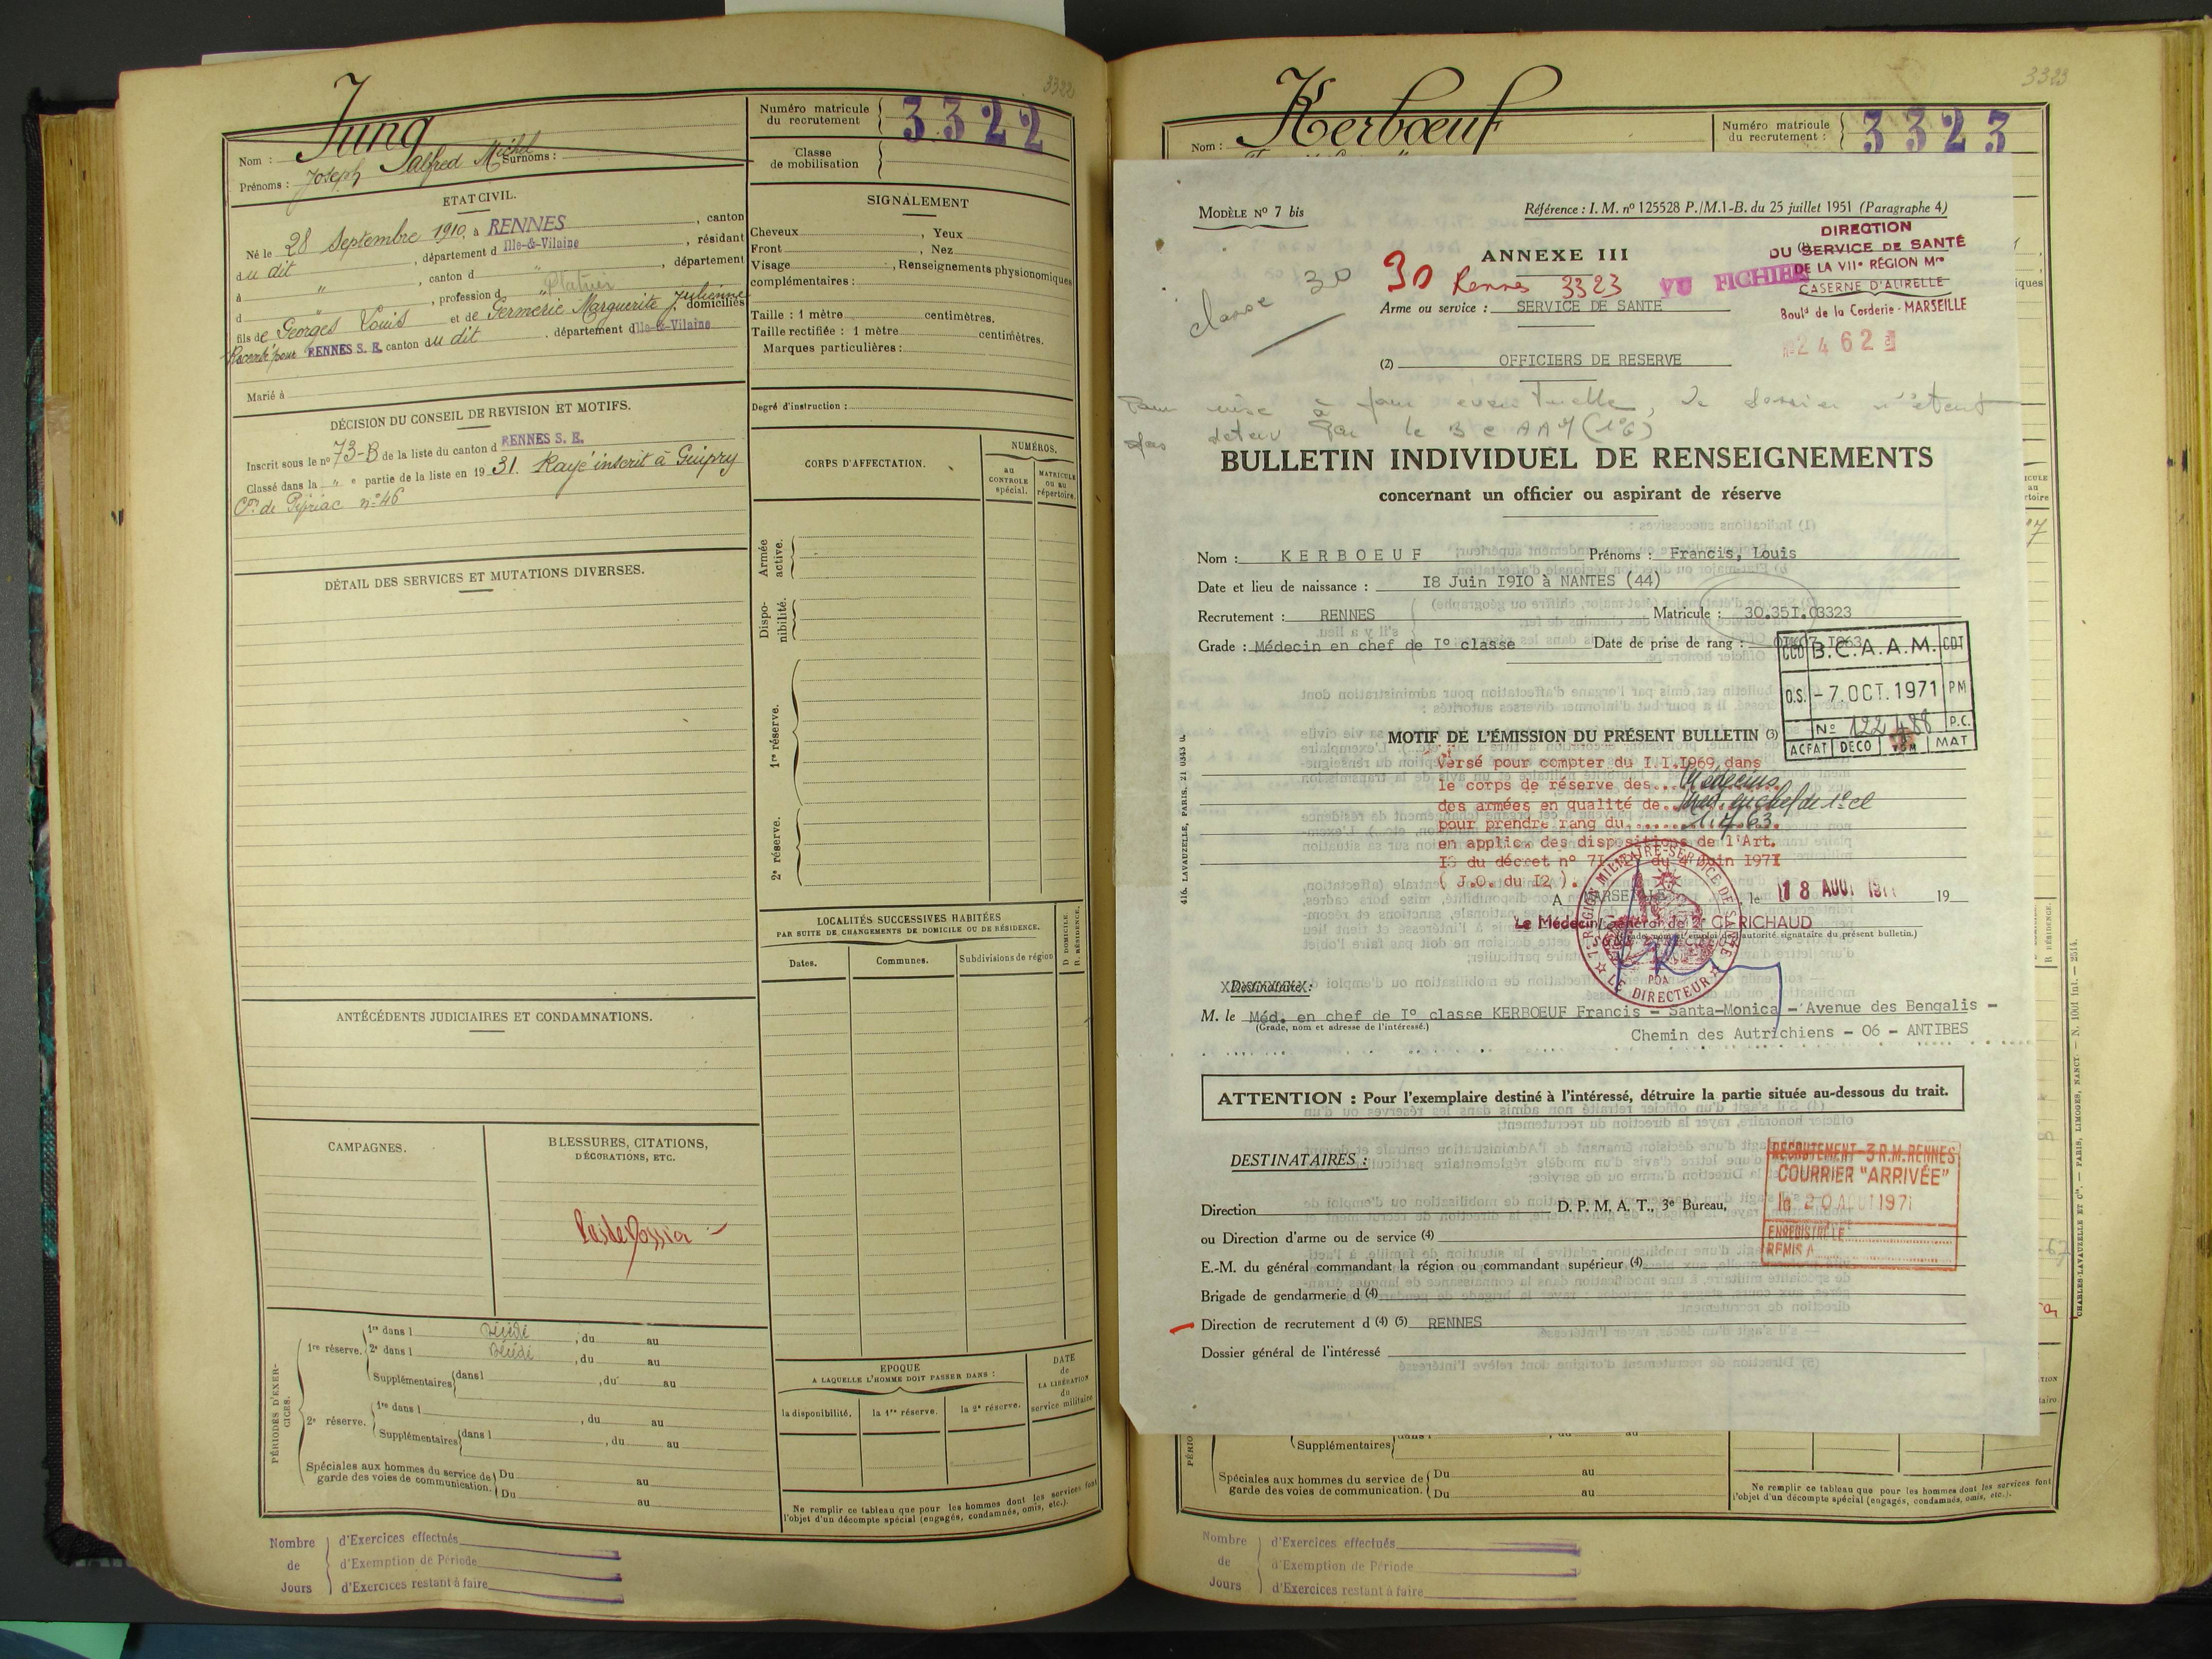 3322
Jung
Nom :
Surnoms :
Prénoms : Joseph Alfred Michel
Numéro matricule du recrutement 3322
Classe de mobilisation
ETAT CIVIL.
Né le 28 Septembre 1910, à RENNES, canton
du dit, département d Ille-&-Vilaine, résidant
à " , canton d " , département
d " , profession d Platrier
fils de Georges Louis et de Germerie Marguerite J. Julienne domiciliés
Recensé pour RENNES S. E. canton du dit, département d Ille-&-Vilaine
Marié à
DÉCISION DU CONSEIL DE REVISION ET MOTIFS.
Inscrit sous le nº 73-B de la liste du canton d RENNES S. E.
Classé dans la " e partie de la liste en 1931. Rayé inscrit à Guipry
Con de Pipriac nº 46
DÉTAIL DES SERVICES ET MUTATIONS DIVERSES.
ANTÉCÉDENTS JUDICIAIRES ET CONDAMNATIONS.
CAMPAGNES.
BLESSURES, CITATIONS,
DÉCORATIONS, ETC.
Pas de Dossier
PÉRIODES D'EXERCICES.
1re réserve.
1re dans l Décédé, du au
2e dans l Décédé, du au
Supplémentaires dans l , du au
2e réserve.
1re dans l , du au
Supplémentaires dans l , du au
Spéciales aux hommes du service de garde des voies de communication.
Du au
Du au
Nombre de Jours
d'Exercices effectués
d'Exemption de Période
d'Exercices restant à faire
SIGNALEMENT
Cheveux , Yeux
Front , Nez
Visage , Renseignements physionomiques
complémentaires :
Taille : 1 mètre centimètres.
Taille rectifiée : 1 mètre centimètres.
Marques particulières :
Degré d'instruction :
CORPS D'AFFECTATION.
NUMÉROS.
au CONTROLE spécial.
MATRICULE ou au répertoire.
Armée active.
Disponibilité.
1re réserve.
2e réserve.
LOCALITÉS SUCCESSIVES HABITÉES
PAR SUITE DE CHANGEMENTS DE DOMICILE OU DE RÉSIDENCE.
D. DOMICILE.
R. RÉSIDENCE.
Dates.
Communes.
Subdivisions de région
EPOQUE
A LAQUELLE L'HOMME DOIT PASSER DANS :
DATE de LA LIBÉRATION du service militaire
la disponibilité.
la 1re réserve.
la 2e réserve.
Ne remplir ce tableau que pour les hommes dont les services font
l'objet d'un décompte spécial (engagés, condamnés, omis, etc.).
3323
Kerbœuf
Nom :
Numéro matricule du recrutement : 3323
MODÈLE Nº 7 bis
Référence : I. M. nº 125528 P./M.1-B. du 25 juillet 1951 (Paragraphe 4)
DIRECTION
DU SERVICE DE SANTÉ
DE LA VIIe RÉGION Mre
CASERNE D'AURELLE
Bould de la Corderie - MARSEILLE
Nº 2462
ANNEXE III
classe 30
30 Rennes 3323
VU FICHIER
Arme ou service : SERVICE DE SANTE
(2) OFFICIERS DE RESERVE
Pour mise à jour éventuelle, le dossier n'étant
pas détenu par le
BULLETIN INDIVIDUEL DE RENSEIGNEMENTS
concernant un officier ou aspirant de réserve
Nom : KERBOEUF Prénoms : Francis, Louis
Date et lieu de naissance : I8 Juin I9I0 à NANTES (44)
Recrutement : RENNES Matricule : 30.35I.03323
Grade : Médecin en chef de I° classe Date de prise de rang :
CCD B.C.A.A.M. CDT
O.S. -7. OCT. 1971 PM
Nº 122 488 P.C.
ACFAT DECO TOM MAT
MOTIF DE L'ÉMISSION DU PRÉSENT BULLETIN (3)
Versé pour compter du I.I.I969 dans
le corps de réserve des Médecins
des armées en qualité de Med. en chef de 1e cl
pour prendre rang du 1.7.63.
en applic. des dispositions de l'Art.
du décret nº 71 du 4 Juin 1971
( J.O. du I2 ).
A MARSEILLE, le 18 AOUT 1971 19
Le Médecin Général de 2e Cl RICHAUD
(Grade, nom et emploi de l'autorité signataire du présent bulletin.)
7e RÉGION MILITAIRE - SERVICE DE SANTÉ
LE DIRECTEUR
Destinataire :
M. le Méd. en chef de I° classe KERBOEUF Francis - Santa-Monica - Avenue des Bengalis -
(Grade, nom et adresse de l'intéressé.)
Chemin des Autrichiens - 06 - ANTIBES
ATTENTION : Pour l'exemplaire destiné à l'intéressé, détruire la partie située au-dessous du trait.
DESTINATAIRES :
RECRUTEMENT-3 R.M. RENNES
COURRIER "ARRIVÉE"
le 20 AOUT 1971
ENREGISTRÉ LE
REMIS A
Direction D. P. M. A. T., 3e Bureau,
ou Direction d'arme ou de service (4)
E.-M. du général commandant la région ou commandant supérieur (4)
Brigade de gendarmerie d (4)
Direction de recrutement d (4) (5) RENNES
Dossier général de l'intéressé
416. LAVAUZELLE, PARIS. 21 0343 u.
Supplémentaires dans l , du au
Spéciales aux hommes du service de garde des voies de communication.
Du au
Du au
Ne remplir ce tableau que pour les hommes dont les services font
l'objet d'un décompte spécial (engagés, condamnés, omis, etc.).
CHARLES-LAVAUZELLE ET Cie. — PARIS, LIMOGES, NANCY. — N. 100d int. — 2514.
Nombre de Jours
d'Exercices effectués
d'Exemption de Période
d'Exercices restant à faire